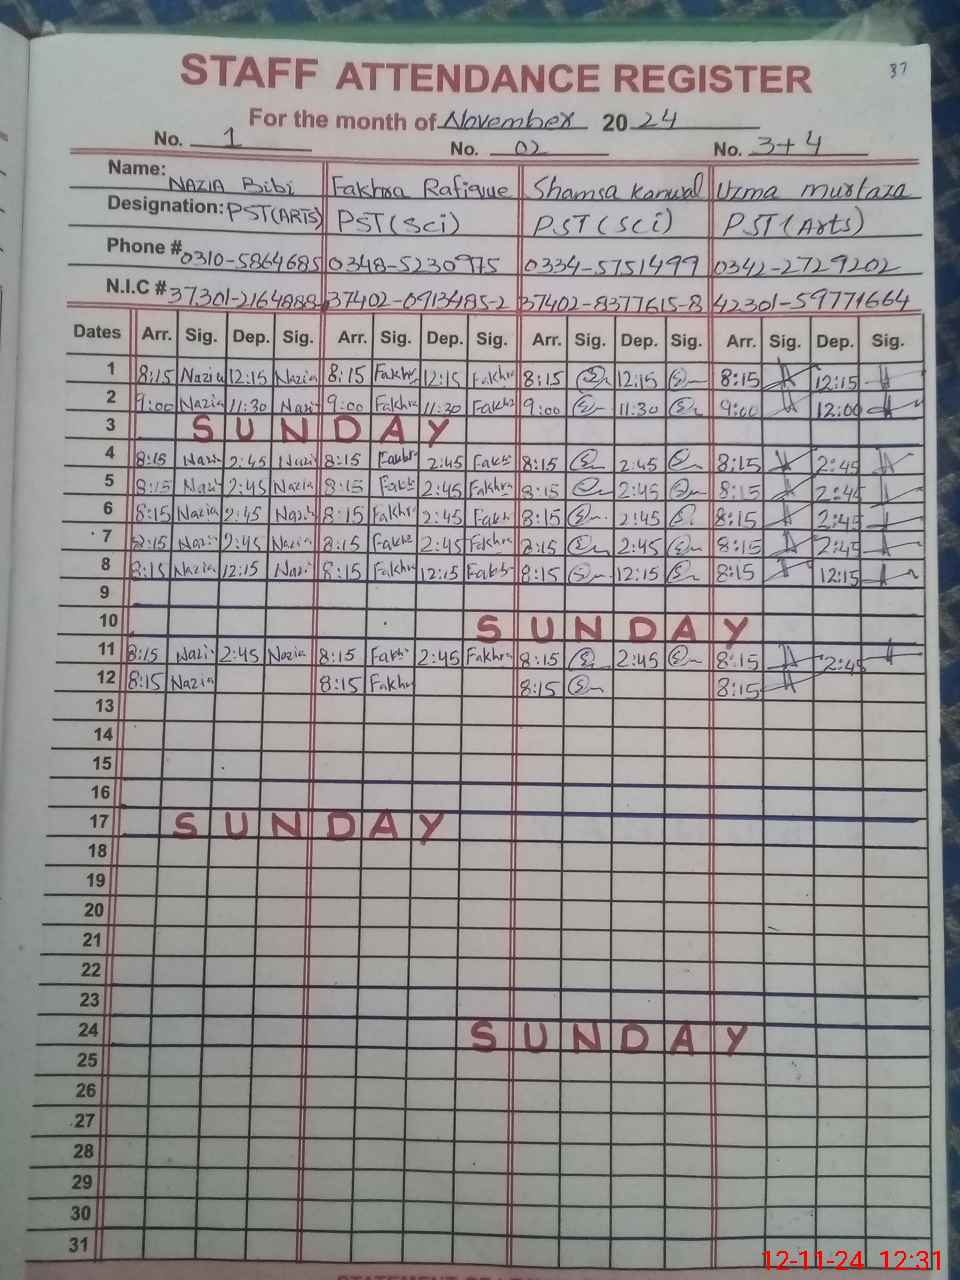 37
STAFF ATTENDANCE REGISTER
For the month of November 2024
No. 1 No. 02 No. 3+4
Name: NAZIA Bibi Fakhra Rafique Shamsa Kanwal Uzma murtaza
Designation: PST(ARTS) PST(Sci) PST(Sci) PST(Arts)
Phone # 0310-5864685 0348-5230975 0334-5751499 0342-2729202
N.I.C # 37301-2164888 37402-0913485-2 37402-8377615-8 42301-59771664
Dates Arr. Sig. Dep. Sig. Arr. Sig. Dep. Sig. Arr. Sig. Dep. Sig. Arr. Sig. Dep. Sig.
1 8:15 Nazia 12:15 Nazia 8:15 Fakhr 12:15 Fakhr 8:15 12:15 8:15 12:15
2 9:00 Nazia 11:30 Nazi 9:00 Fakhra 11:30 Fakh 9:00 11:30 9:00 12:00
3 SUNDAY
4 8:15 Nazi 2:45 Nazi 8:15 Fakhr 2:45 Fakh 8:15 2:45 8:15 2:45
5 8:15 Nazi 2:45 Nazia 8:15 Fakh 2:45 Fakhra 8:15 2:45 8:15 2:45
6 8:15 Nazia 2:45 Nazi 8:15 Fakhr 2:45 Fakh 8:15 2:45 8:15 2:45
7 8:15 Nazi 2:45 Nazia 8:15 Fakh 2:45 Fakhra 8:15 2:45 8:15 2:45
8 8:15 Nazia 12:15 Nazi 8:15 Fakhr 12:15 Fakh 8:15 12:15 8:15 12:15
9
10 SUNDAY
11 8:15 Nazi 2:45 Nazia 8:15 Fakh 2:45 Fakhra 8:15 2:45 8:15 2:45
12 8:15 Nazia 8:15 Fakhr 8:15 8:15
13
14
15
16
17 SUNDAY
18
19
20
21
22
23
24 SUNDAY
25
26
27
28
29
30
31
12-11-24 12:31